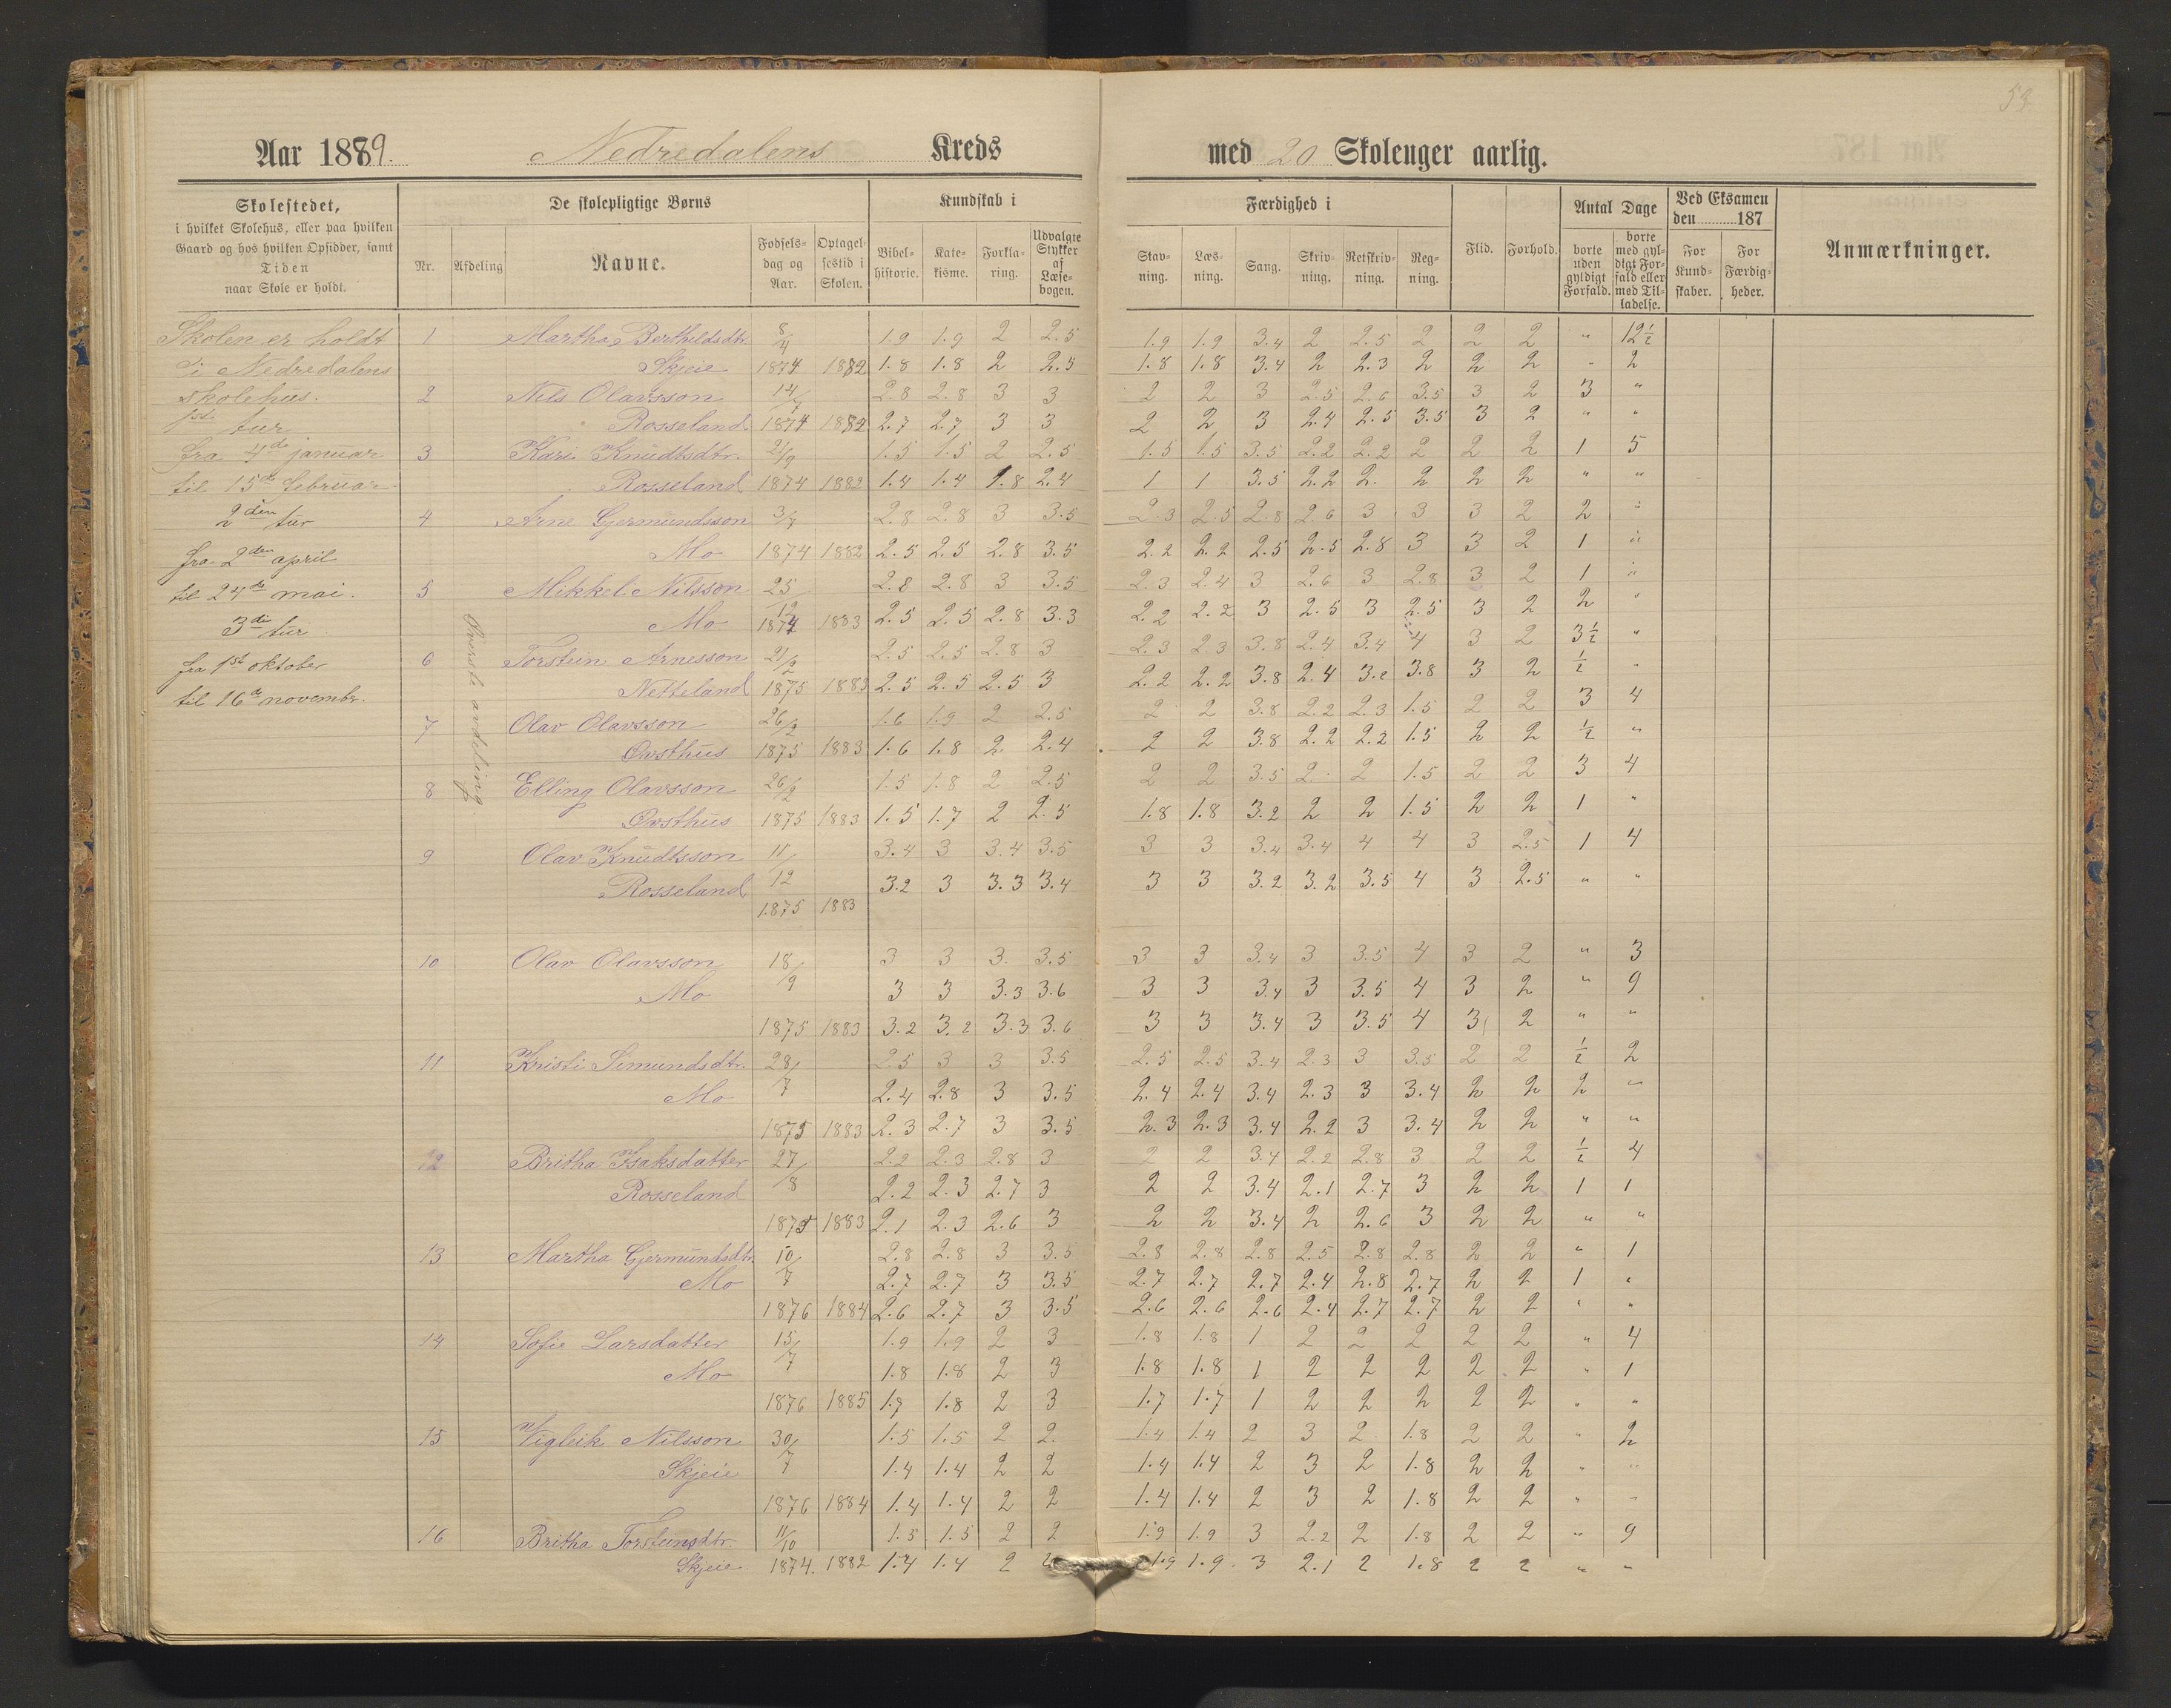 53
Aar 1889. Nedredalens Kreds med 20 Skoleuger aarlig.
Skolestedet, i hvilket Skolehus, eller paa hvilken Gaard og hos hvilken Opsidder, samt Tiden naar Skole er holdt.
De skolepligtige Børns
Nr. Afdeling Navne. Fødselsdag og Aar. Optagelsestid i Skolen.
Kundskab i
Bibelhistorie. Katekisme. Forklaring. Udvalgte Stykker af Læsebogen.
Færdighed i
Stavning. Læsning. Sang. Skrivning. Retskrivning. Regning.
Flid. Forhold.
Antal Dage
borte uden gyldigt Forfald. borte med gyldigt Forfald eller med Tilladelse.
Ved Eksamen den 187
For Kundskaber. For Færdigheder.
Anmærkninger.
Skolen er holdt
i Nedredalens
skolehus.
1ste tur
fra 4de januar
til 15de februar
2den tur
fra 2den april
til 24de mai.
3die tur
fra 1ste oktober
til 16de novembr.
Øverste avdeling.
1 Martha Bertheldsdtr. 8/4 1.9 1.9 2 2.5 1.9 1.9 3.4 2 2.5 2 2 2 " 12½
Skjeie 1874 1882 1.8 1.8 2 2.5 1.8 1.8 3.4 2 2.3 2 2 2 " 2
2 Nils Olavsson 14/4 2.8 2.8 3 3 2 2 3 2.5 2.6 3.5 3 2 3 "
Rosseland 1874 1882 2.7 2.7 3 3 2 2 3 2.4 2.5 3.5 3 2 " "
3 Kari Knudtsdtr. 21/9 1.5 1.5 2 2.5 1.5 1.5 3.5 2.2 2.2 2 2 2 1 5
Rosseland 1874 1882 1.4 1.4 1.8 2.4 1 1 3.5 2.2 2. 2 2 2 " "
4 Arne Gjermundsson 3/7 2.8 2.8 3 3.5 2.3 2.5 2.8 2.6 3 3 3 2 2 "
Mo 1874 1882 2.5 2.5 2.8 3.5 2.2 2.2 2.5 2.5 2.8 3 3 2 1 "
5 Mikkel Nilsson 25/12 2.8 2.8 3 3.5 2.3 2.4 3 2.6 3 2.8 3 2 1 "
Mo 1874 1883 2.5 2.5 2.8 3.3 2.2 2.2 3 2.5 3 2.5 3 2 2 "
6 Torstein Arnesson 21/2 2.5 2.5 2.8 3 2.3 2.3 3.8 2.4 3.4 4 3 2 3½ "
Netteland 1875 1883 2.5 2.5 2.5 3 2.2 2.2 3.8 2.4 3.2 3.8 3 2 ½ "
7 Olav Olavsson 26/2 1.6 1.9 2 2.5 2 2 3.8 2.2 2.3 1.5 2 2 3 4
Øvsthus 1875 1883 1.6 1.8 2. 2.4 2 2 3.8 2.2 2.2 1.5 2 2 ½ "
8 Elling Olavsson 26/2 1.5 1.8 2 2.5 2 2 3.5 2. 2 1.5 2 2 3 4
Øvsthus 1875 1883 1.5 1.7 2 2.5 1.8 1.8 3.2 2 2 1.5 2 2 1 "
9 Olav Knudtsson 11/12 3.4 3 3.4 3.5 3 3 3.4 3.4 4 4 3 2.5 1 4
Rosseland 3.2 3 3.3 3.4 3 3 3.2 3.2 3.5 4 3 2.5 " "
1875 1883
10 Olav Olavsson 18/9 3 3 3. 3.5 3 3 3.4 3 3.5 4 3 2 " 3
Mo 3 3 3.3 3.6 3 3 3.4 3 3.5 4 3 2 " 9
1875 1883 3.2 3.2 3.3 3.6 3 3 3.4 3 3.5 4 3 2 " "
11 Kristi Simundsdtr. 28/7 2.5 3 3 3.5 2.5 2.5 3.4 2.3 3 3.5 2 2 ½ 2
Mo 2.4 2.8 3 3.5 2.4 2.4 3.4 2.3 3 3.4 2 2 2 "
1875 1883 2.3 2.7 3 3.5 2.3 2.3 3.4 2.2 3 3.4 2 2 " "
12 Britha Isaksdatter 27/8 2.2 2.3 2.8 3 2 2 3.4 2.2 2.8 3 2 2 ½ 4
Rosseland 2.2 2.3 2.7 3 2 2 3.4 2.1 2.7 3 2 2 1 1
1875 1883 2.1 2.3 2.6 3 2 2 3.4 2 2.6 3 2 2 " "
13 Martha Gjermundsdtr. 10/7 2.8 2.8 3 3.5 2.8 2.8 2.8 2.5 2.8 2.8 2 2 " 1
Mo 2.7 2.7 3 3.5 2.7 2.7 2.7 2.4 2.8 2.7 2 2 1 "
1876 1884 2.6 2.7 3 3.5 2.6 2.6 2.6 2.4 2.7 2.7 2 2 " "
14 Sofie Larsdatter 15/7 1.9 1.9 2 3 1.8 1.8 1 2 2 2 2 2 " 4
Mo 1.8 1.8 2 3 1.8 1.8 1 2 2 2 2 2 " 1
1876 1885 1.7 1.8 2 3 1.7 1.7 1 2 2 2 2 2 " "
15 Vigleik Nilsson 30/7 1.5 1.5 2 2. 1.4 1.4 2 3 2 1.8 2 2 " 2
Skjeie 1.4 1.4 2 2 1.4 1.4 2 3 2 1.8 2 2 " "
1876 1884 1.4 1.4 2 2 1.4 1.4 2 3 2 1.8 2 2 " "
16 Britha Torsteinsdtr. 11/10 1.5 1.5 2 2 1.9 1.9 3 2.2 2 1.8 2 2 " 9
Skjeie. 1874. 1882 1.4 1.4 2 2 1.9 1.9. 3 2.1 2 1.8 2 2 " "